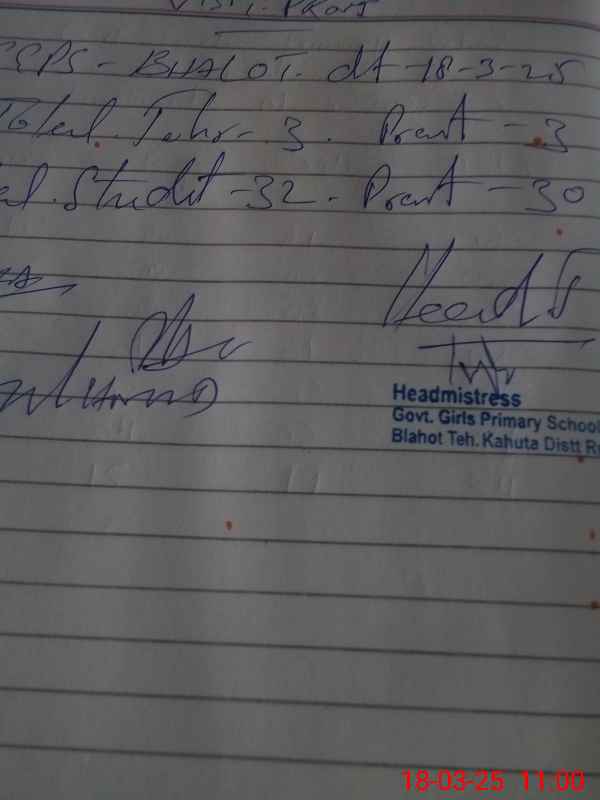 GGPS - BHALOT. dt - 18-3-25
Total. Tchr - 3. Prant - 3
al. Studit - 32 - Prant - 30
Head T
Headmistress
Govt. Girls Primary School
Blahot Teh. Kahuta Distt R
18-03-25 11.00